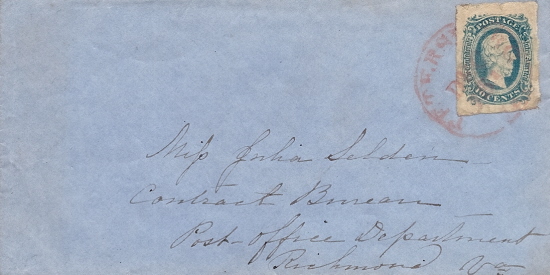 POSTAGE
10 CENTS
Miss Julia Selden
Contract Bureau
Post Office Department
Richmond Va